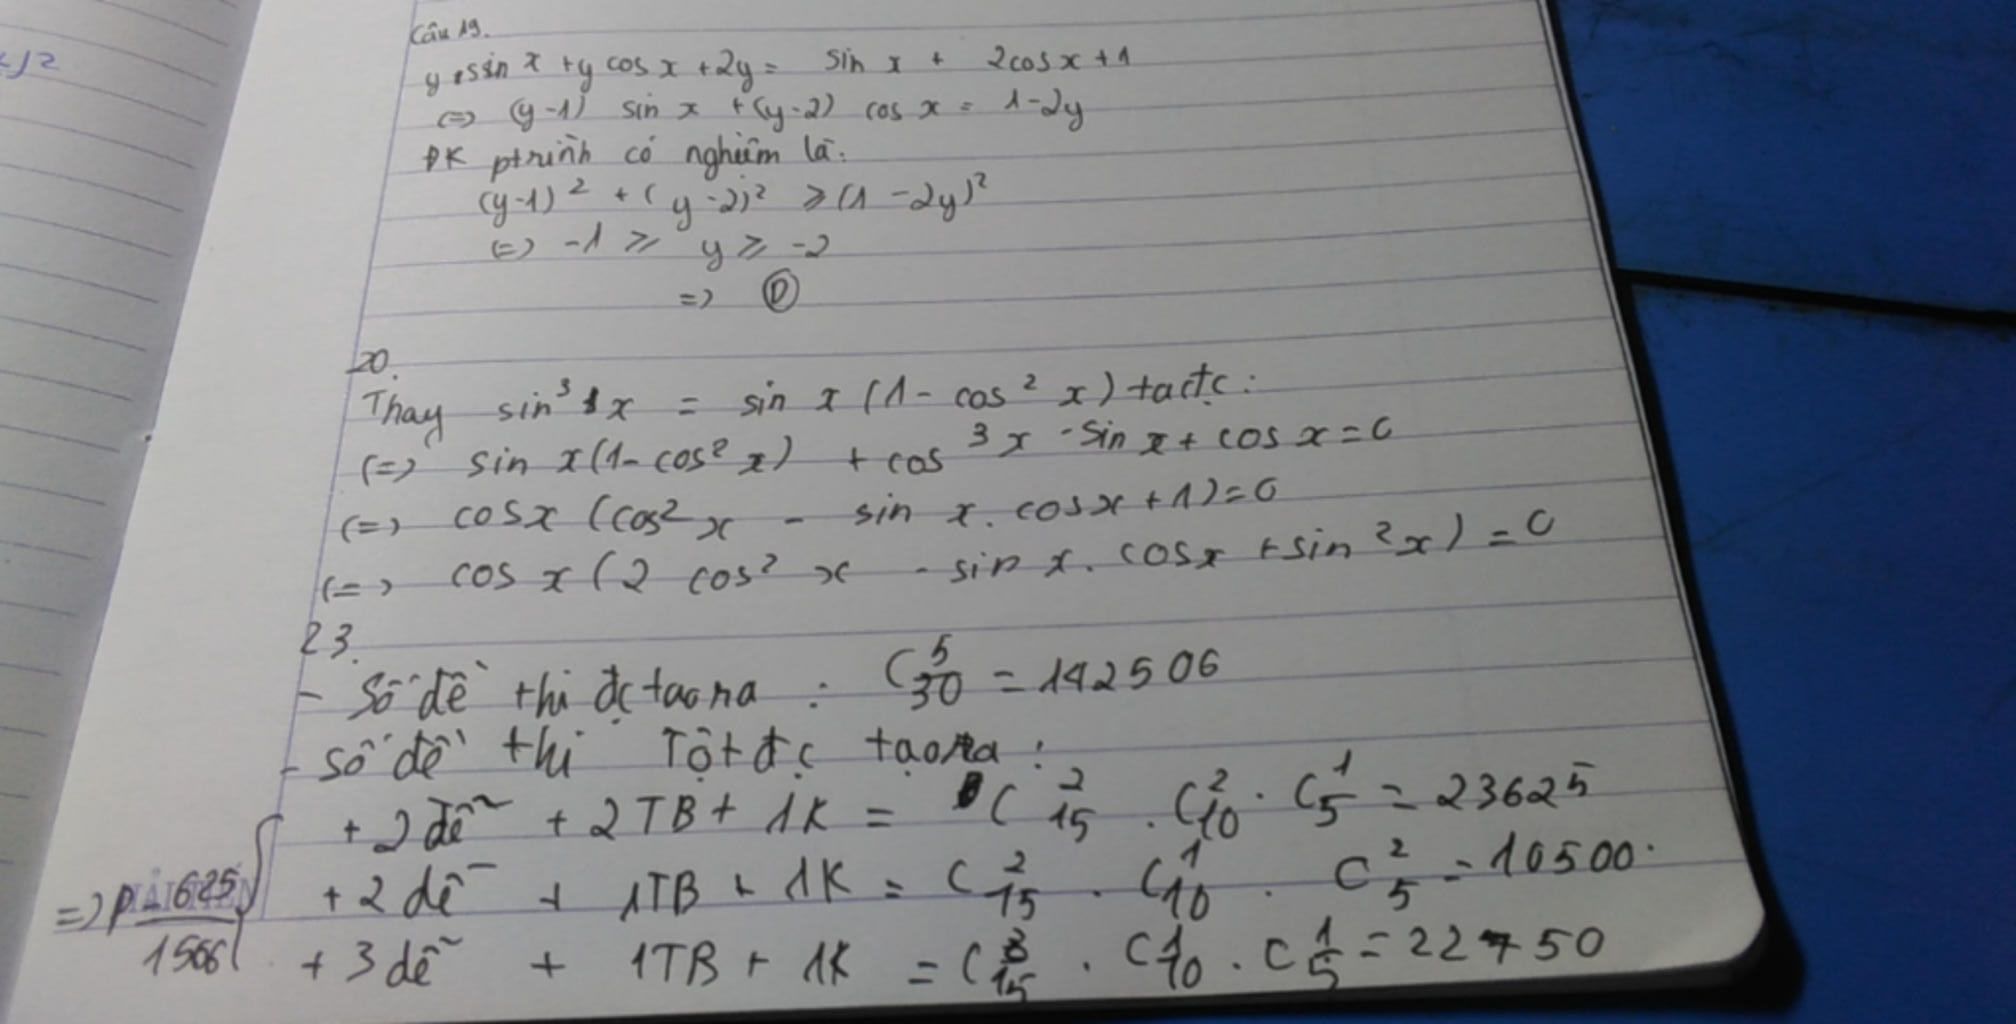 Câu 19.
y sin x + y cos x + 2y = sin x + 2cos x + 1
(=) (y-1) sin x + (y-2) cos x = 1-2y
ĐK ptrình có nghiệm là:
(y-1)² + (y-2)² ≥ (1-2y)²
(=) -1 ≥ y ≥ -2
=> D
20.
Thay sin³ x = sin x (1 - cos² x) ta đc:
(=) sin x (1 - cos² x) + cos³ x - sin x + cos x = 0
(=) cos x (cos² x - sin x . cos x + 1) = 0
(=) cos x (2 cos² x - sin x . cos x + sin² x) = 0
23.
- Số đề thi đc tạo ra : C⁵₃₀ = 142506
- Số đề thi Tột đc tạo ra :
+ 2 dễ + 2TB + 1K = C²₁₅ . C²₁₀ . C¹₅ = 23625
+ 2 dễ + 1TB + 1K = C²₁₅ . C¹₁₀ . C²₅ = 10500.
+ 3 dễ + 1TB + 1K = C³₁₅ . C¹₁₀ . C¹₅ = 22750
=> P = 625
1566